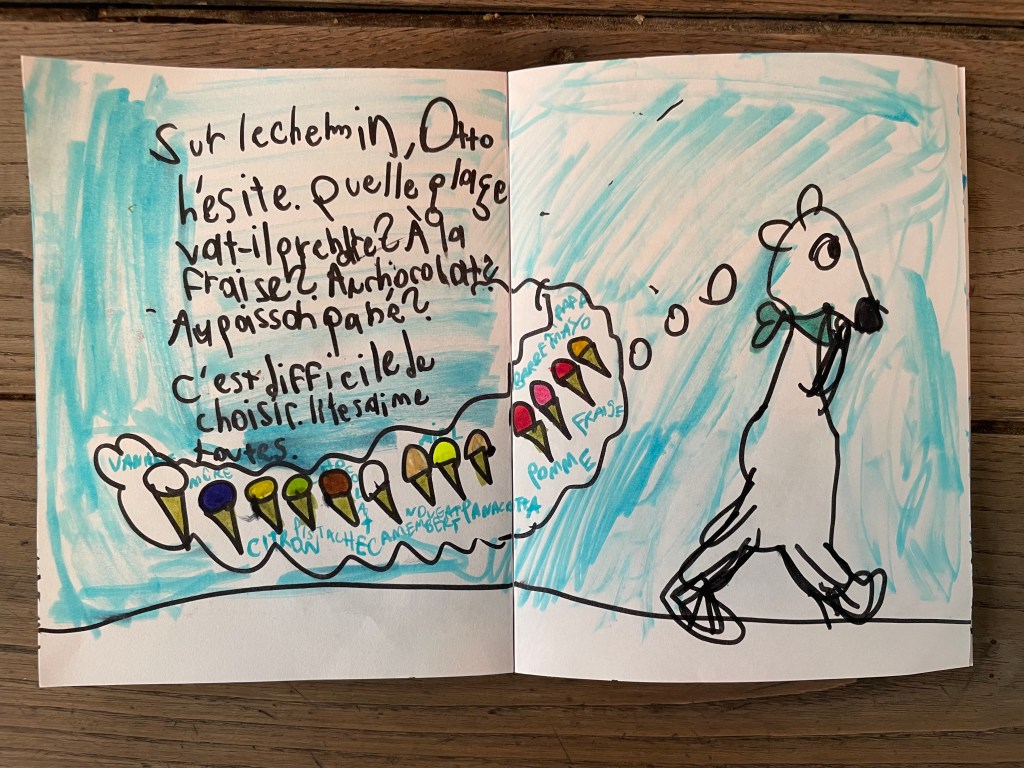 Sur le chemin, Otto
hésite. Quelle glage
vat-il prendtre? À la
Fraise?. Au chocolat?
Au poisson pané?
C'est difficile de
choisir. il les aime
toutes.
VANILLE
MÛRE
CITRON
PISTACHE
CHOCOLAT
CAMEMBERT
NOUGAT
PANACOTTA
POMME
FRAISE
BARBE
MAYO